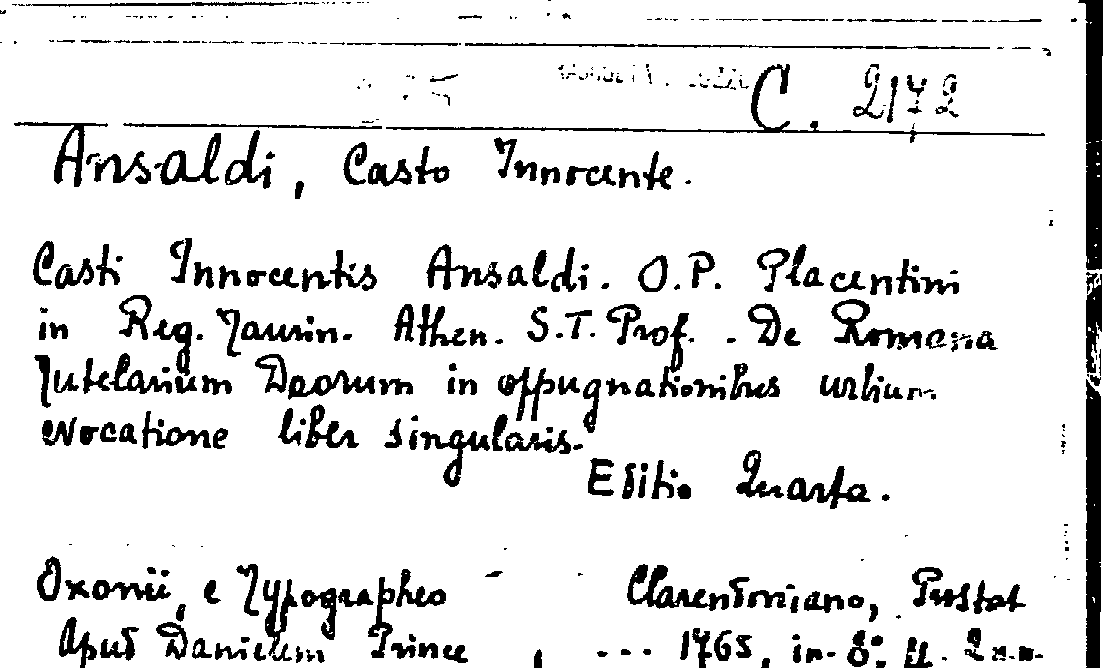 C. 2172
Ansaldi, Casto Innocente.
Casti Innocentis Ansaldi. O.P. Placentini
in Reg. Taurin. Athen. S.T. Prof. . De Romana
Tutelarium Deorum in oppugnationibus urbium
evocatione liber singularis.
Editio Quarta.
Oxonii, e Typographeo - Clarendoniano, Prostat
Apud Danielem Prince, --- 1765, in-8º, ff. 2 n.n.